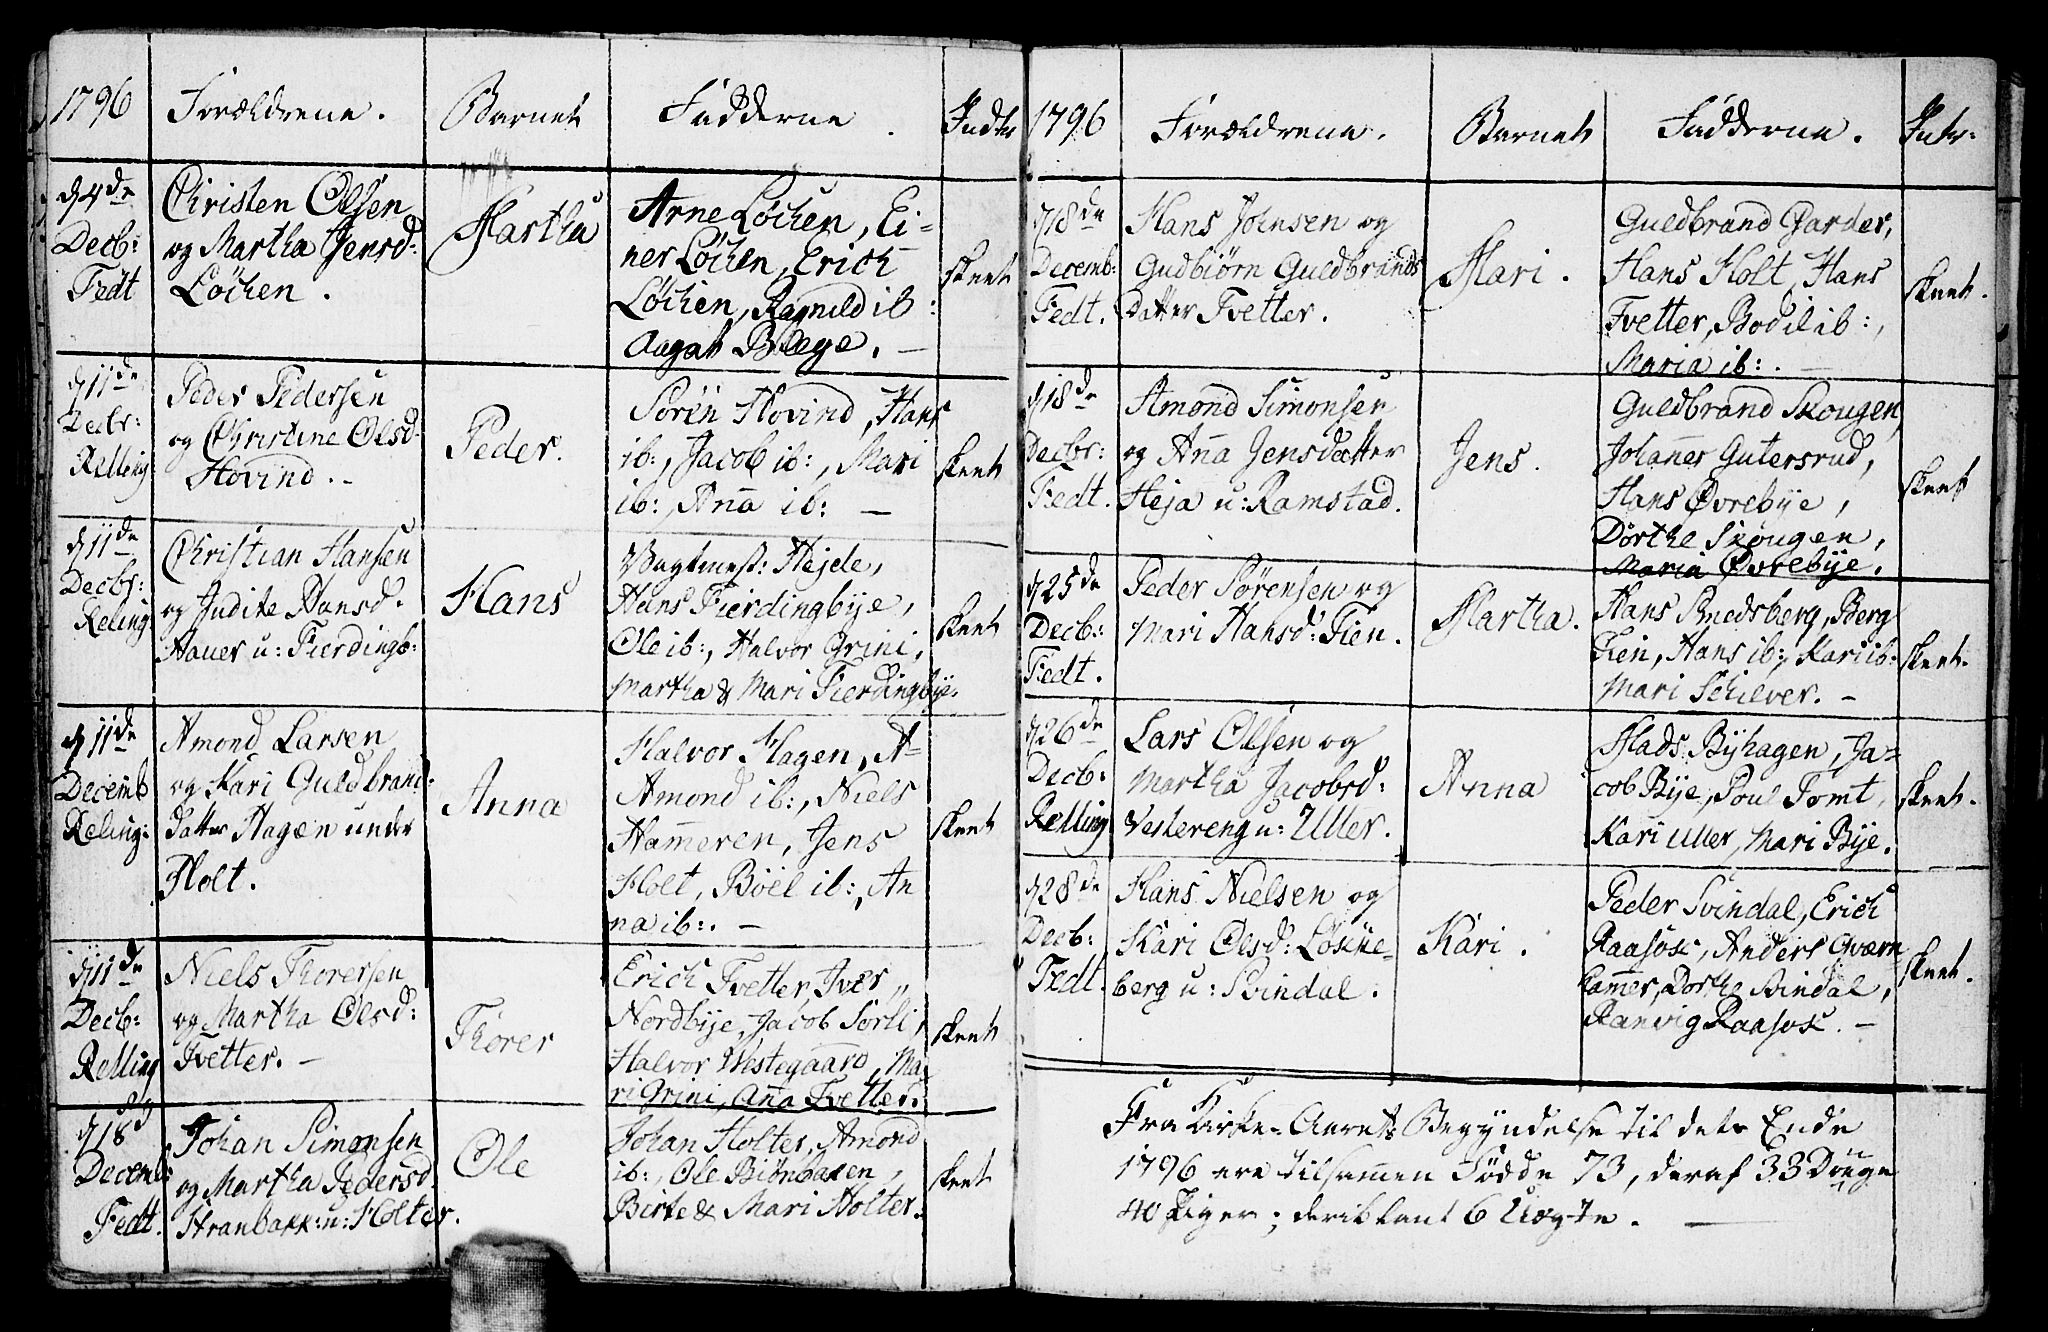 1796 Forældrene. Barnet Fadderne. Indtr
d. 4de
Decb:
Fedt
Christen Olsen
og Martha Jensd:
Løchen.
Martha
Arne Løchen, Ei-
ner Løchen, Erich
Løchen, Ragnild ib:
Aagot Blege. —
skeet
d. 11de
Decbr:
Relling
Peder Pedersen
og Christine Olsd.
Hovind. -
Peder.
Sören Hovind, Hans
ib:, Jacob ib:, Mari
ib:, Ana ib: —
skeet
d. 11de
Decbr:
Reling
Christian Hansen
og Judite Hansd.
Hauer u: Fierdingb:
Hans
Vagtmest: Hejde,
Hans Fierdingbye,
Ole ib:, Halvor Grini,
Martha & Mari Fierdingbye.
skeet
d. 11de
Decemb
Reling:
Amond Larsen
og Kari Guldbrand-
datter Hagen under
Holt.
Anna
Halvor Hagen, A-
Amond ib:, Niels
Hameren, Jens
Holt, Böel ib:, An
na ib:. —
skeet
d. 11de
Decb:
Relling
Niels Thorersen
og Martha Olsd:
Tvetter. —
Thorer
Erich Tvetter, Iver
Nordbye, Jacob Sörli,
Halvor Westegaard, Ma-
ri Grini, Ana Tvetter.
skeet
d. 18d
Decemb
Fedt.
Johan Simonsen
og Martha Pedersd
Stranbakk: u: Holter.
Ole
Johan Holter, Amond
ib:, Ole Biönbaken,
Birte & Mari Holter.
skeet
1796 Forældrene. Barnet Fadderne. Intr.
d. 18de
Decemb:
Fedt.
Hans Johnsen og
Gudbiörn Guldbrands
Datter Tvetter.
Mari.
Guldbrand Garder,
Hans Holt, Hans
Tvetter, Bodil ib:,
Maria ib:. —
skeet.
d. 18de
Decbr:
Fedt.
Amond Simonsen
og Ana Jensdatter
Heja u: Ramstad.
Jens.
Guldbrand Skougen,
Johanes Gutersrud,
Hans Øvrebye,
Dorthe Skougen,
Maria Øvrebye.
skeet
d. 25de
Decb:
Fedt.
Peder Sørensen og
Mari Hansd: Tien.
Martha.
Hans Smedsberg, Berg
Tien, Hans ib:, Kari ib:
Mari Schilver. —
skeet.
d. 26de
Decb:
Relling
Lars Olsen og
Martha Jacobsd:
Vestereng u: Uller.
Anna
Mads Byhagen, Ja-
cob Bye, Poul Tomt,
Kari Uller, Mari Bye.
skeet.
d. 28de
Decb:
Fedt.
Hans Nielsen og
Kari Olsd: Løkke-
berg u: Svindal.
Kari.
Peder Svindal, Erich
Raasok, Anders Qværn-
hamer, Dorthe Svindal,
Ranvig Raasok. —
skeet.
Fra Kirke-Aarets Begyndelse til dets Ende
1796 ere tilsamen Fødde 73, deraf 33 Drenge
40 Piger; deriblant 6 Uægte. —